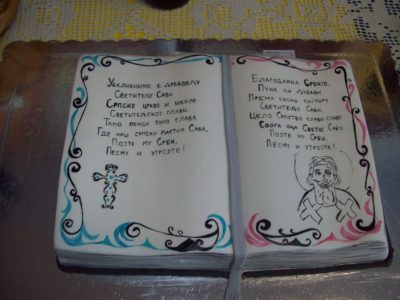 Ускликнимо с љубављу
Светитељу Сави
Српске цркве и школе
Светитељској глави.
Тамо венци тамо слава
Где наш српски пастир Сава,
Појте му Срби,
Песму и утројте!
Благодарна Србијо,
Пуна си љубави
Према своме пастиру
Светитељу Сави.
Цело Српство слави славу
Свога оца Светог Саву
Појте му Срби,
Песму и утројте!